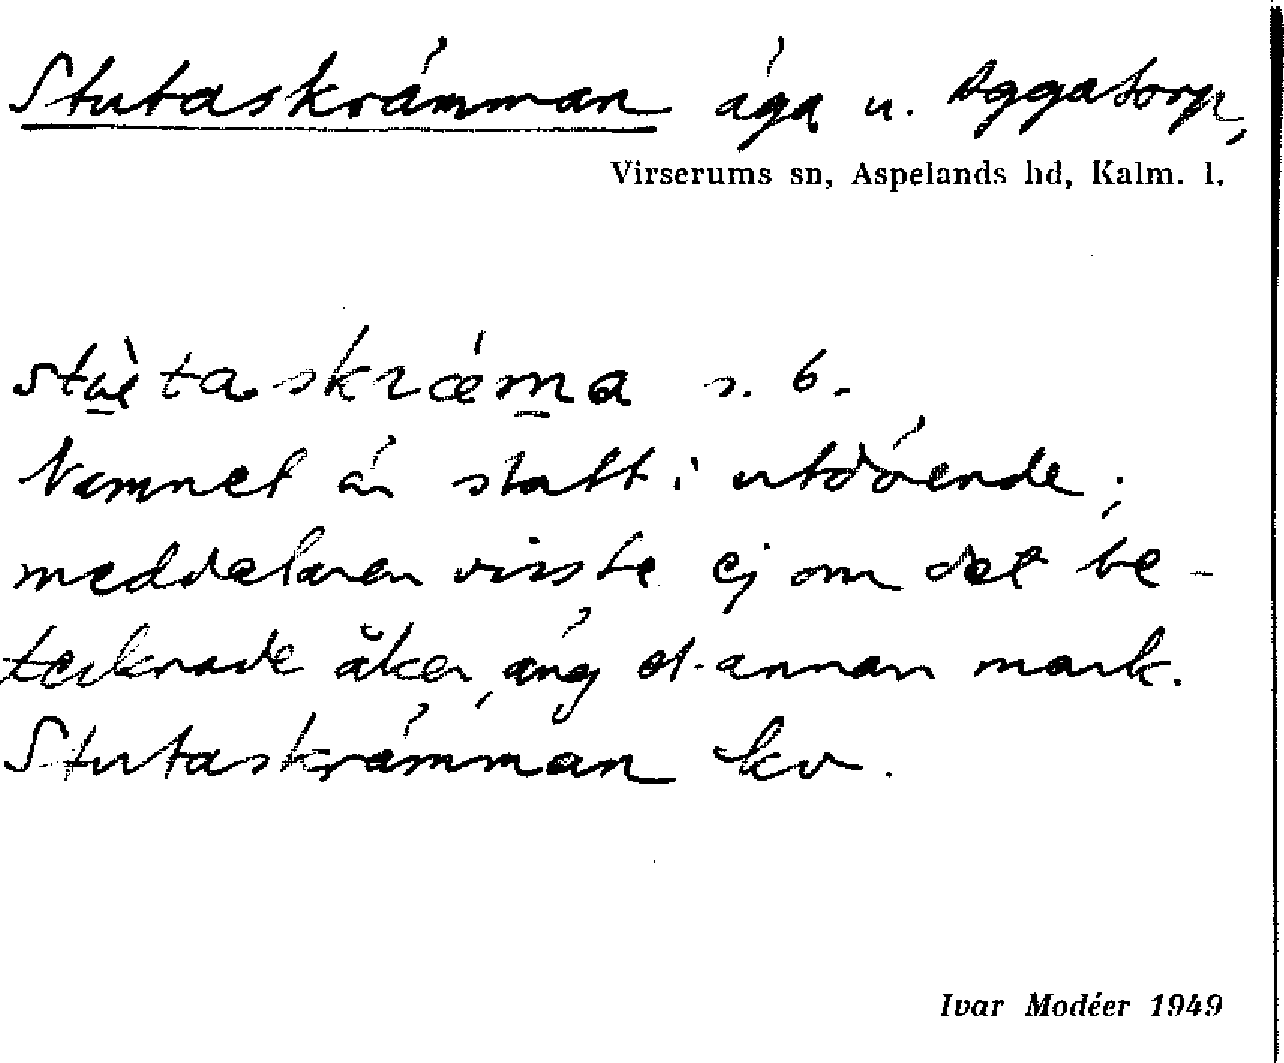 Stutaskrämman äga u. Aggatorp,
Virserums sn, Aspelands hd, Kalm. l.
stùtaskrǽma s. b.
Namnet är statt i utdöende;
meddelaren visste ej om det be-
tecknade åker, äng el. annan mark.
Stutaskrämman kv.
Ivar Modéer 1949